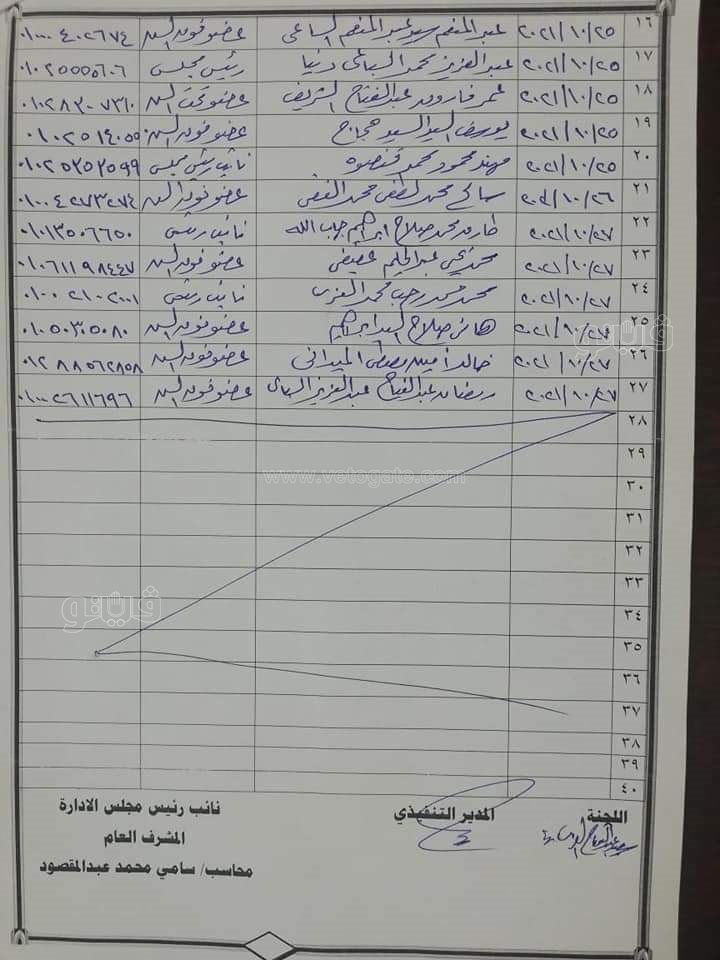 ١٦ ٢٠٢١/١٠/٢٥ عبد المنعم سعيد عبد المنعم السباعى عضو فوق السن ٠١٠٠٠٤٠٢٦٧٤
١٧ ٢٠٢١/١٠/٢٥ عبد العزيز محمد السباعى دنيا رئيس مجلس ٠١٠٢٥٥٥٥٦٠٦
١٨ ٢٠٢١/١٠/٢٥ عمر فاروق عبد الفتاح الشريف عضو تحت السن ٠١٠٢٨٣٠٧٣١٠
١٩ ٢٠٢١/١٠/٢٥ يوسف السيد السيد حجاج عضو فوق السن ٠١٠٢٥١٤٠٥٥
٢٠ ٢٠٢١/١٠/٢٥ مهند محمود محمد قنصوه نائب رئيس مجلس ٠١٠٢٥٢٥٢٥٩٩
٢١ ٢٠٢١/١٠/٢٦ سامح محمد لطفى محمد الفقى عضو فوق السن ٠١٠٠٤٢٧٣٢٧٤
٢٢ ٢٠٢١/١٠/٢٧ طارق محمد صلاح ابراهيم جاب الله نائب رئيس ٠١٠١٣٥٠٦٦٥٠
٢٣ ٢٠٢١/١٠/٢٧ محمد يحى عبد الحليم عفيفى عضو فوق السن ٠١٠٦١١٩٨٤٤٧
٢٤ ٢٠٢١/١٠/٢٧ محمد رجب محمد العزب نائب رئيس ٠١٠٠٢١٠٢٠٠١
٢٥ ٢٠٢١/١٠/٢٧ هانى صلاح السيد ابراهيم عضو فوق السن ٠١٠٥٠٣٠٥٠٨٠
٢٦ ٢٠٢١/١٠/٢٧ خالد امين مصطفى الميدانى عضو فوق السن ٠١٢٨٨٥٦٢٨٥٨
٢٧ ٢٠٢١/١٠/٢٧ رمضان عبد الفتاح عبد العزيز عضو فوق السن ٠١٠٠٠٢٦١١٦٩٦
٢٨
٢٩
٣٠
٣١
٣٢
٣٣
٣٤
٣٥
٣٦
٣٧
٣٨
٣٩
٤٠
اللجنة المدير التنفيذي نائب رئيس مجلس الادارة
المشرف العام
محاسب/ سامي محمد عبدالمقصود
www.vetogate.com
ڤيتو
ڤيتو